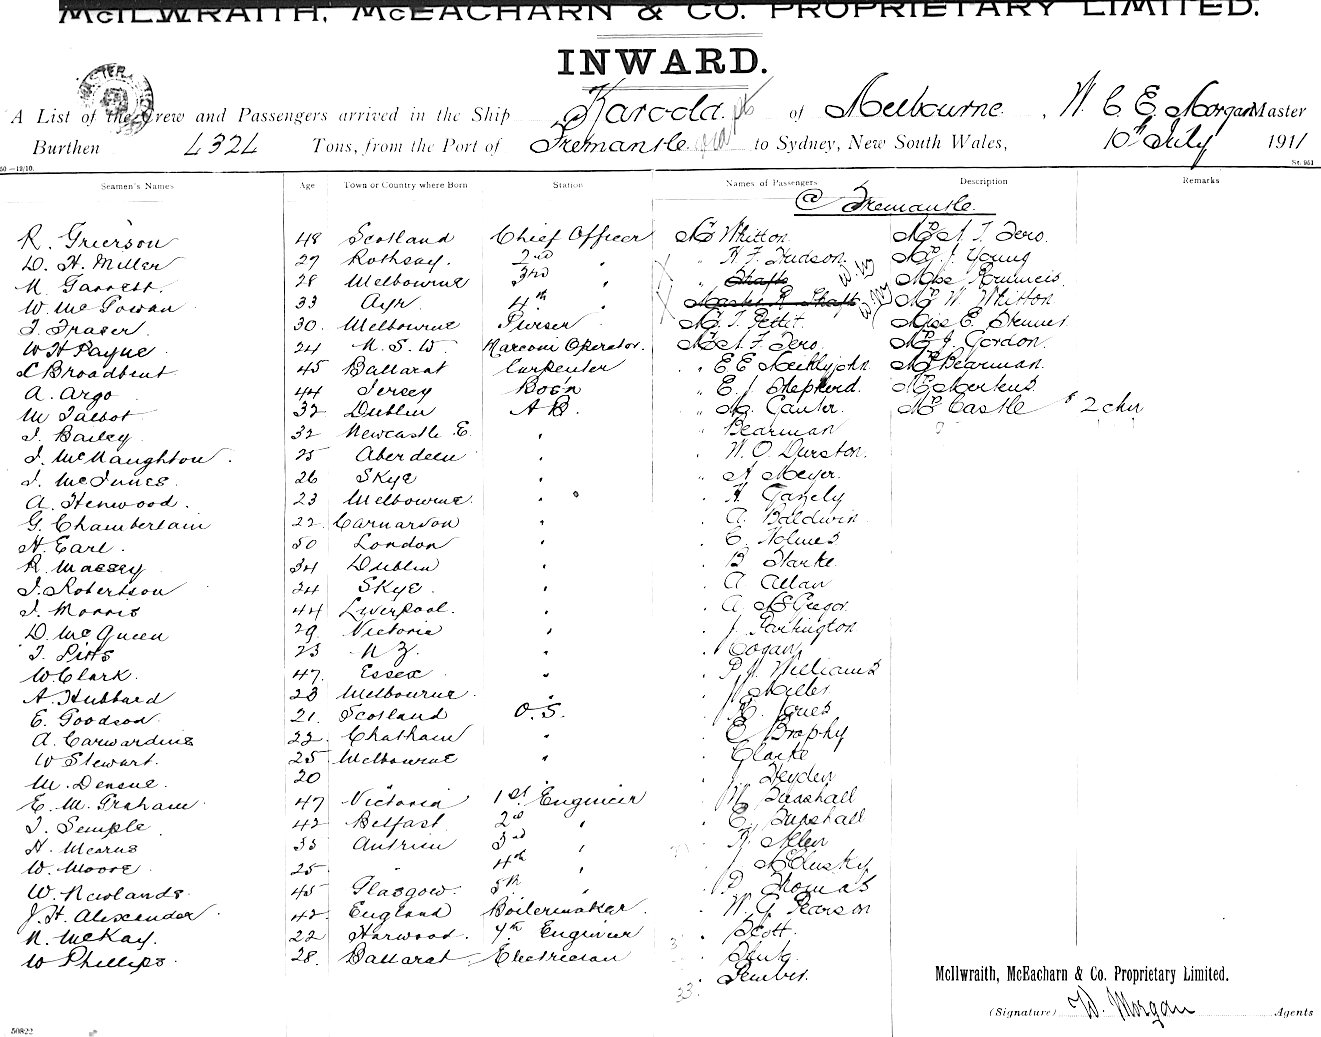 McILWRAITH, McEACHARN & CO. PROPRIETARY LIMITED.
INWARD.
A List of the Crew and Passengers arrived in the Ship Karoola of Melbourne, W. C. E. Morgan Master
Burthen 4324 Tons, from the Port of Fremantle to Sydney, New South Wales, 10th July 1911
50.—12/10. St. 951
Seamen's Names Age Town or Country where Born Station Names of Passengers Description Remarks
@ Fremantle
R. Grierson 48 Scotland Chief Officer Mr Whitton Mrs A. F. Zero.
D. H. Miller 27 Rothsay. 2nd " H F Hudson Mr J Young
N. Garrett. 28 Melbourne 3rd Miss
W. McGowan 33 Ayr. 4th Mrs W Whitton
J. Fraser 30. Melbourne Purser Mr T. Pettit. Miss E.
W H Payne 24 N. S. W. Marconi Operator. Mr A F Zero. Mrs J. Gordon.
Broadbent 45 Ballarat Carpenter " E E Meiklejohn Mrs Bearman.
A. Argo 44 Jersey Bos'n " E. J. Shepherd. Mrs Merkus
M Talbot 32 Dublin A B. " Mrs Castle & 2 chn
J. Bailey 32 Newcastle E. " Bearman
J. McNaughton. 25 Aberdeen " W. O. Durston.
J. McInnes. 26 Skye " A Meyer.
A. Henwood. 23 Melbourne " H
G. Chamberlain 22. Carnarvon " A. Baldwin
H. Earl. 50 London " C. Holmes
R Massey 34 Dublin " B Starke.
J. Robertson 24 Skye. " A Allan
J. Morris 44 Liverpool. " A McGregor
D. McQueen 29 Victoria " J. Partington
J. Pitts 23 N Z. " Cogan
W Clark. 47. Essex " P. J. Williams
A. Hubbard 28 Melbourne. " J Miller
E. Goodson 21. Scotland O.S. " Jones
A. Carwardine 22. Chatham " E Brophy
W Stewart. 25 Melbourne " Clarke
M. 20 " J Heyden
E. M. Graham 47 Victoria 1st Engineer
J. Semple 42 Belfast 2nd " E.
H. Mearns 33 Antrim 3rd " Allen
W. Moore. 25 " 4th " J McClusky
W. Newlands. 45 Glasgow. 5th " P. Thomas
J. H. Alexander 42. England Boilermaker. " W. G. Pearson
N. McKay. 22 Harwood. 7th Engineer " Scott.
W Phillips. 28. Ballarat Electrician
33.
McIlwraith, McEacharn & Co. Proprietary Limited.
(Signature) W. Morgan Agents
50822